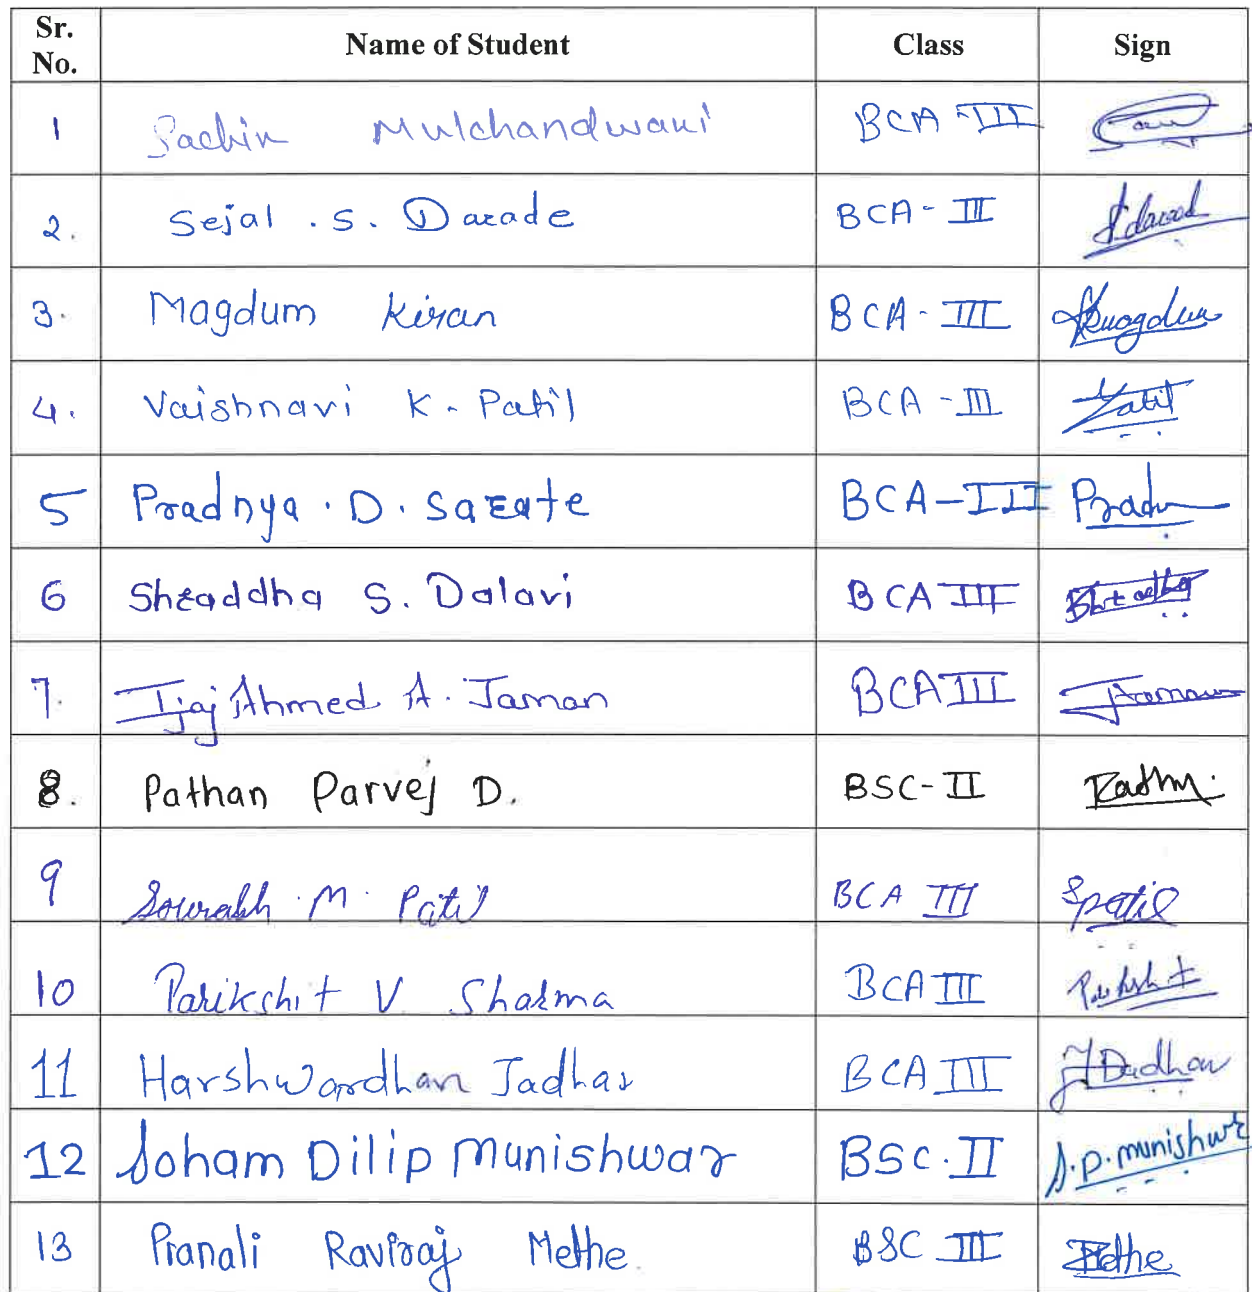 Sr. No. Name of Student Class Sign
1 Sachin Mulchandwani BCA-III
2. Sejal . S. Darade BCA-III
3. Magdum Kiran BCA-III
4. Vaishnavi K. Patil BCA-III Patil
5 Pradnya . D. Sarate BCA-III
6 Shraddha S. Dalavi BCA III
7. Ijaj Ahmed A. Jaman BCA III
8. Pathan Parvej D. BSC-II
9 Sourabh . M . Patil BCA III SPatil
10 Parikshit V Sharma BCA III Parikshit
11 Harshwardhan Jadhav BCA III
12 Soham Dilip Munishwar BSC.II S.D.munishwr
13 Pranali Raviraj Methe. BSC III Methe